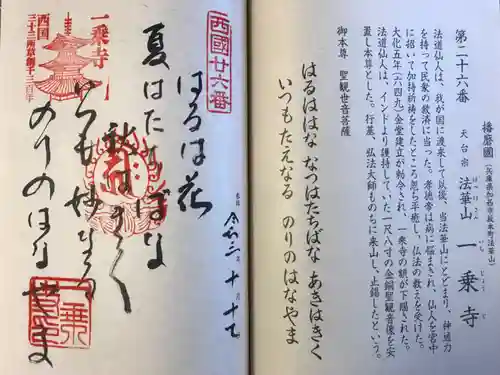 第二十六番
播磨國
(兵庫県加西市坂本町法華山)
天台宗 法華山 一乗寺
ほっけさん いちじょうじ
法道仙人は、我が国に渡来して以後、当法華山にとどまり、神通力
を持って民衆の救済に当った。孝徳帝は病に悩まされ、仙人を宮中
に招いて加持祈祷をしたところ忽ち平癒し、仏法の教えを受けた。
大化五年(六四九)金堂建立が勅令され、一乗寺の額が下賜された。
法道仙人は、インドより護持していた一尺八寸の金銅聖観音像を安
置し本尊とした。行基、弘法大師ものちに来山し、止錫したという。
御本尊 聖観世音菩薩
はるははな なつはたちばな あきはきく
いつもたえなる のりのはなやま
西國廿六番
はるは花
夏はたちばな
秋はきく
いつも妙なる
のりのはなやま
令和三 十 十七
一乗寺
西国
三十三所草創千三百年
一乗